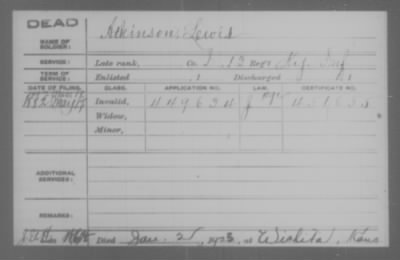 DEAD
NAME OF SOLDIER: Atkinson Lewis
SERVICE: Late rank, Co. I, 12 Reg't Ky. Inf
TERM OF SERVICE: Enlisted , 1 Discharged , 1
DATE OF FILING. CLASS. APPLICATION NO. LAW. CERTIFICATE NO.
1882 Invalid, 449634
Widow,
Minor,
ADDITIONAL SERVICES:
REMARKS:
Died Jan. 1923, at Wichita, Kans